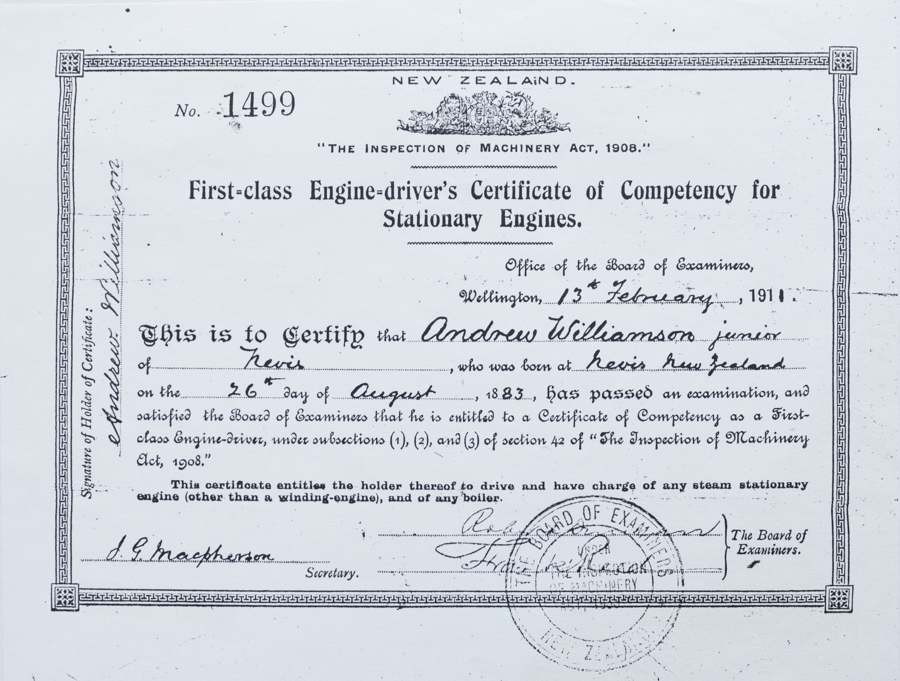 NEW ZEALAND.
No. 1499
"THE INSPECTION OF MACHINERY ACT, 1908."
First-class Engine-driver's Certificate of Competency for
Stationary Engines.
Office of the Board of Examiners,
Wellington, 13th February, 1911.
This is to Certify that Andrew Williamson junior
of Nevis, who was born at Nevis New Zealand
on the 26th day of August, 1883, has passed an examination, and
satisfied the Board of Examiners that he is entitled to a Certificate of Competency as a First-
class Engine-driver, under subsections (1), (2), and (3) of section 42 of "The Inspection of Machinery
Act, 1908."
This certificate entitles the holder thereof to drive and have charge of any steam stationary
engine (other than a winding-engine), and of any boiler.
J. G. Macpherson
Secretary.
The Board of
Examiners.
THE BOARD OF EXAMINERS
UNDER
THE INSPECTION
OF MACHINERY
NEW ZEALAND
Signature of Holder of Certificate:
Andrew Williamson